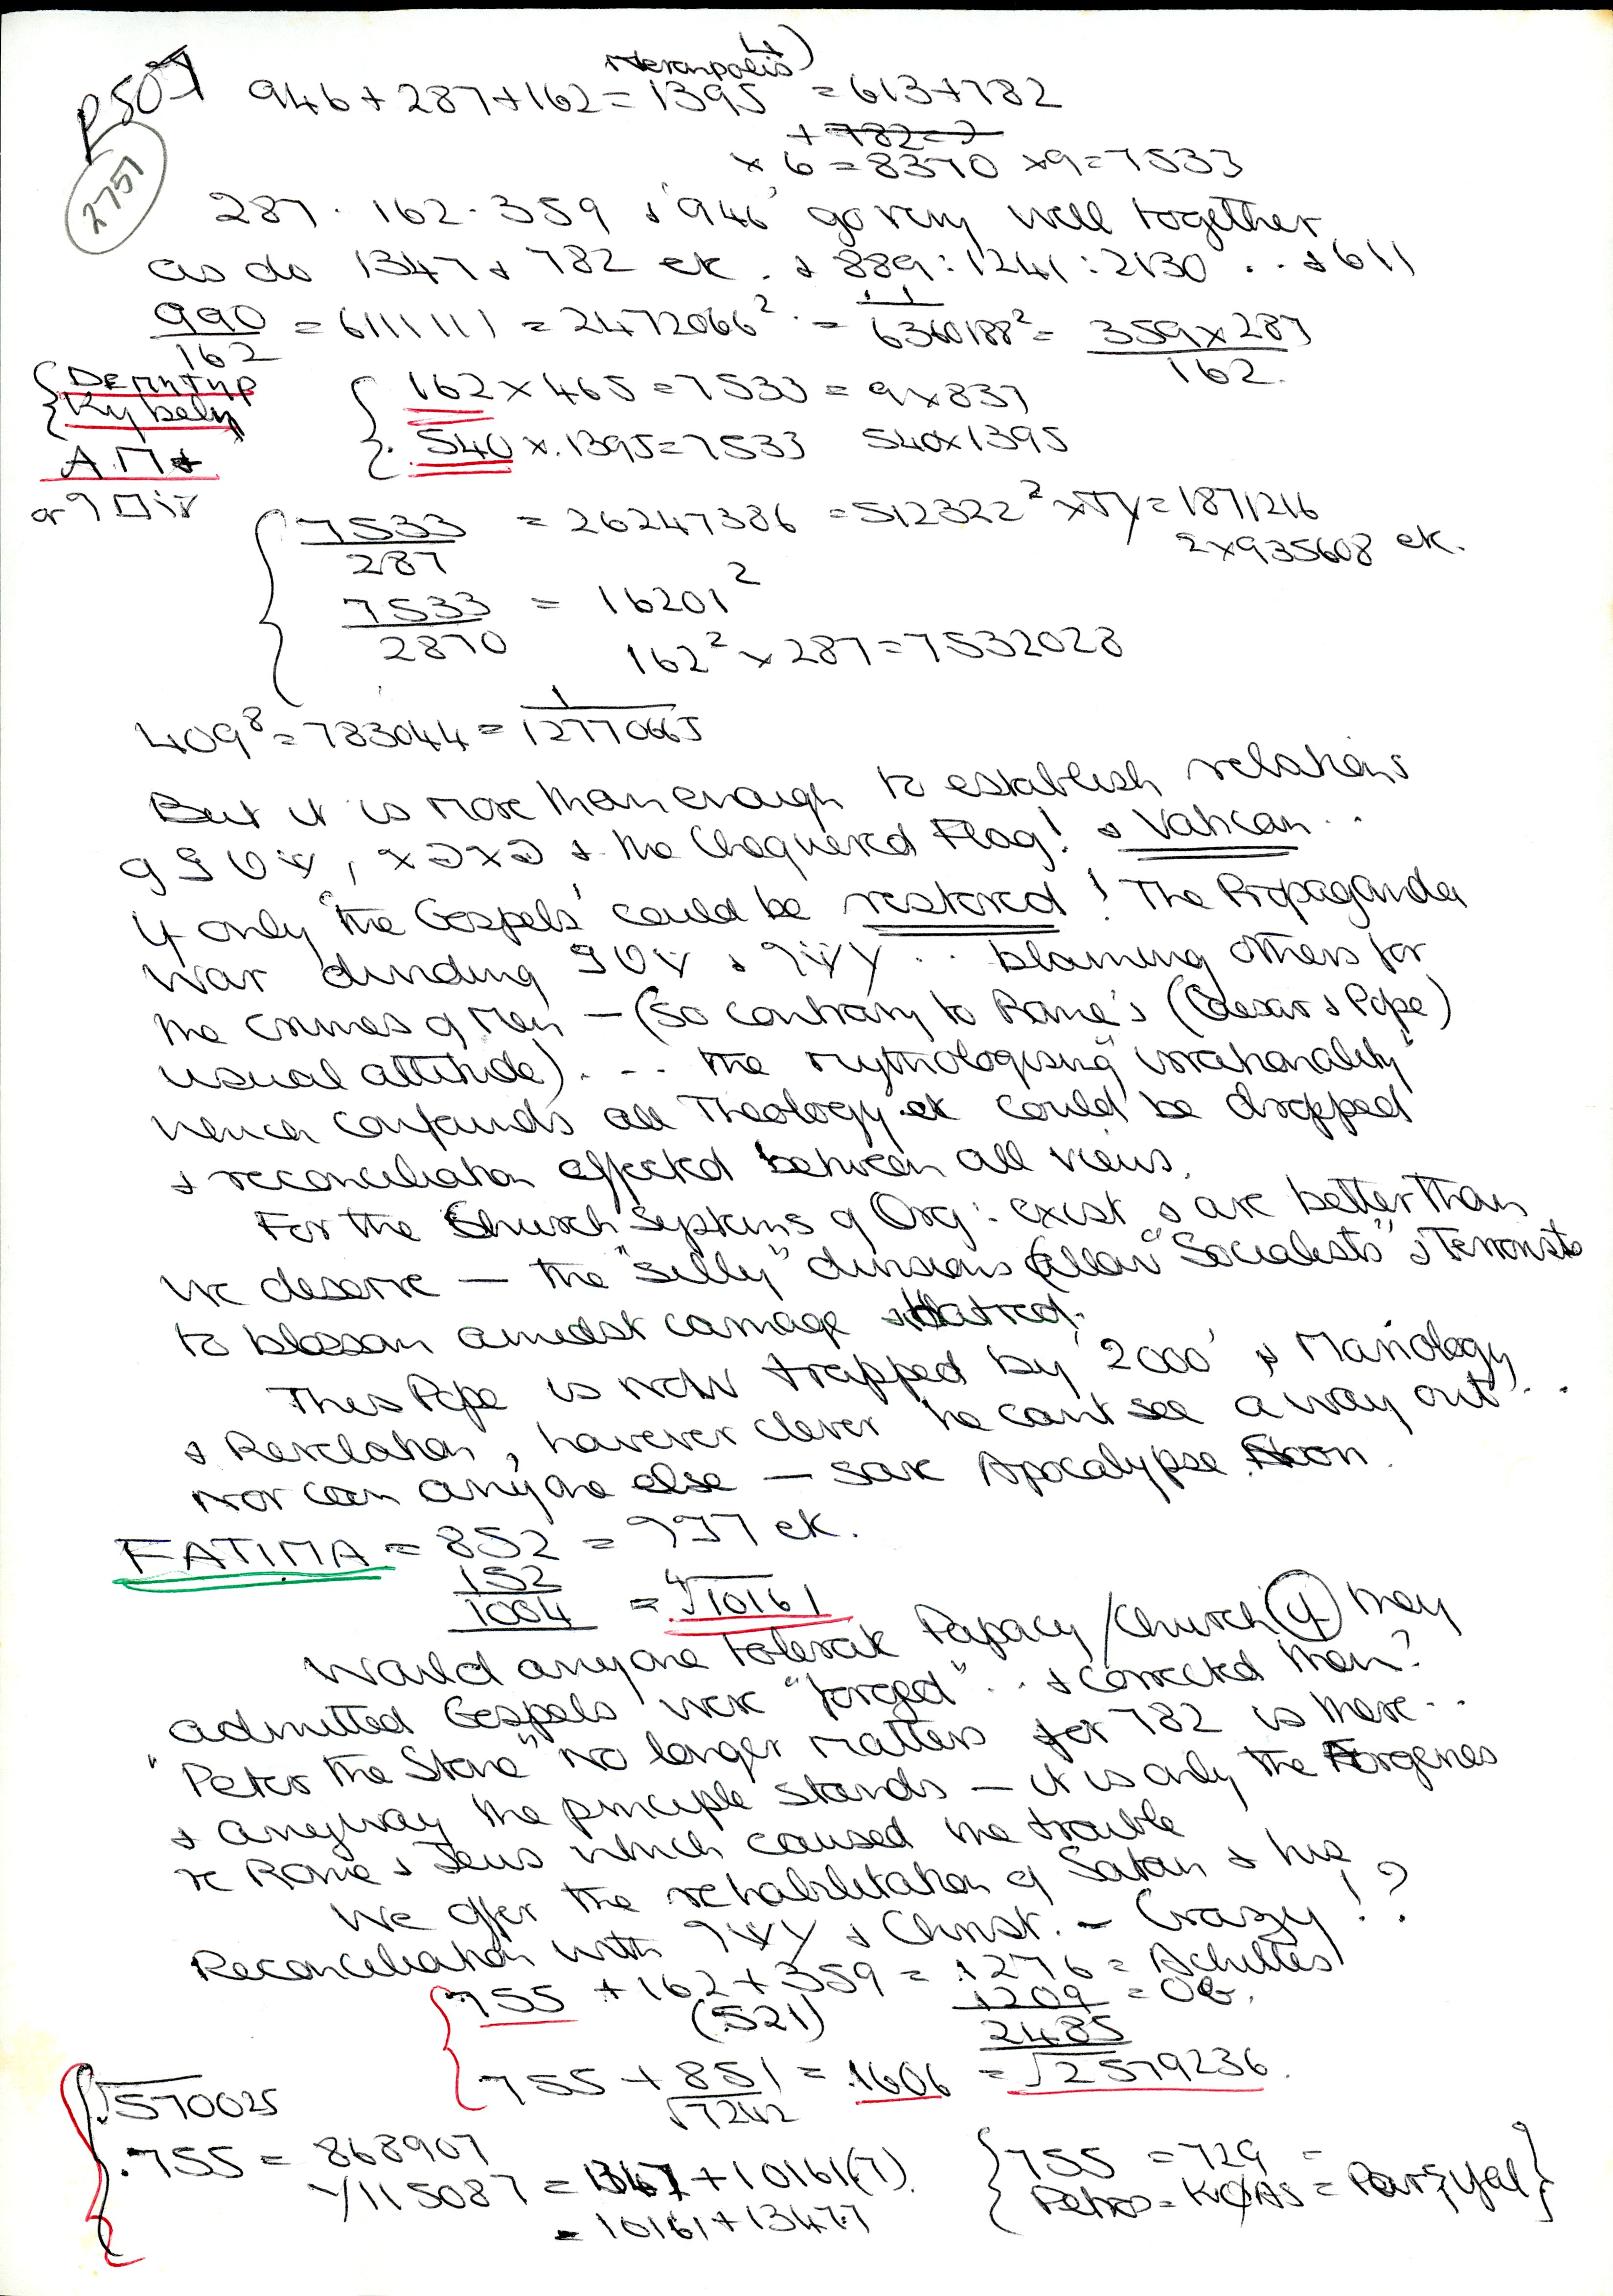 P507
2751
946 + 287 + 162 = 1395 = 613 + 782
+ 782 =
× 6 = 8370 × 9 = 7533
287 · 162 · 359 & '946' go very well together
as do 1347 & 782 etc . & 889 : 1241 : 2130 . . & 611
990/162 = 6111111 = 2472066² · = 1/6360188² = 359 × 287/162.
Kybely
162 × 465 = 7533 = 9 × 837
540 × .1395 = 7533 540 × 1395
or
7533/287 = 26247386 = 512322² × = 1871216
2 × 935608 etc.
7533/2870 = 16201²
162² × 287 = 7532028
409⁸ = 783044 = 1/12770665
But it is more than enough to establish relations
, & the Chequered Flag! & Vatican . .
if only 'the Gospels' could be restored ! The Propaganda
War dividing & . . blaming others for
the crimes of Men — (so contrary to Rome's (Caesar & Pope)
usual attitude) . . . the mythologising "irrationality"
which confounds all Theology etc could be dropped
& reconciliation effected between all views.
For the Church systems of Org: exist & are better than
we deserve — the "silly" divisions allow "Socialists" & Terrorists
to blossom amidst carnage & Hatred.
This Pope is now trapped by '2000' & Mariology
& Revelation, however clever he can't see a way out . .
Nor can anyone else — save Apocalypse Soon.
FATIMA = 852 = etc.
152
1004 = ⁴√10161
Would anyone tolerate Papacy / Church if they
admitted Gospels were "forged" . . & corrected them?
"Peter the Stone" no longer matters for 782 is there . .
& anyway the principle stands — it is only the Forgeries
re Rome & Jews which caused the trouble
We offer the rehabilitation of Satan & his
Reconciliation with & Christ. – Crazy ! ?
755 + 162 + 359 = 1276 = Achilles
(521) 1209 =
2485
755 + 851 = 1606 = √2579236
√7242
√570025
.755 = 868907
115087 = 1347 + 10161(7)
= 10161 + 1347.7
755 = 729 =
Petros = = Parzyval